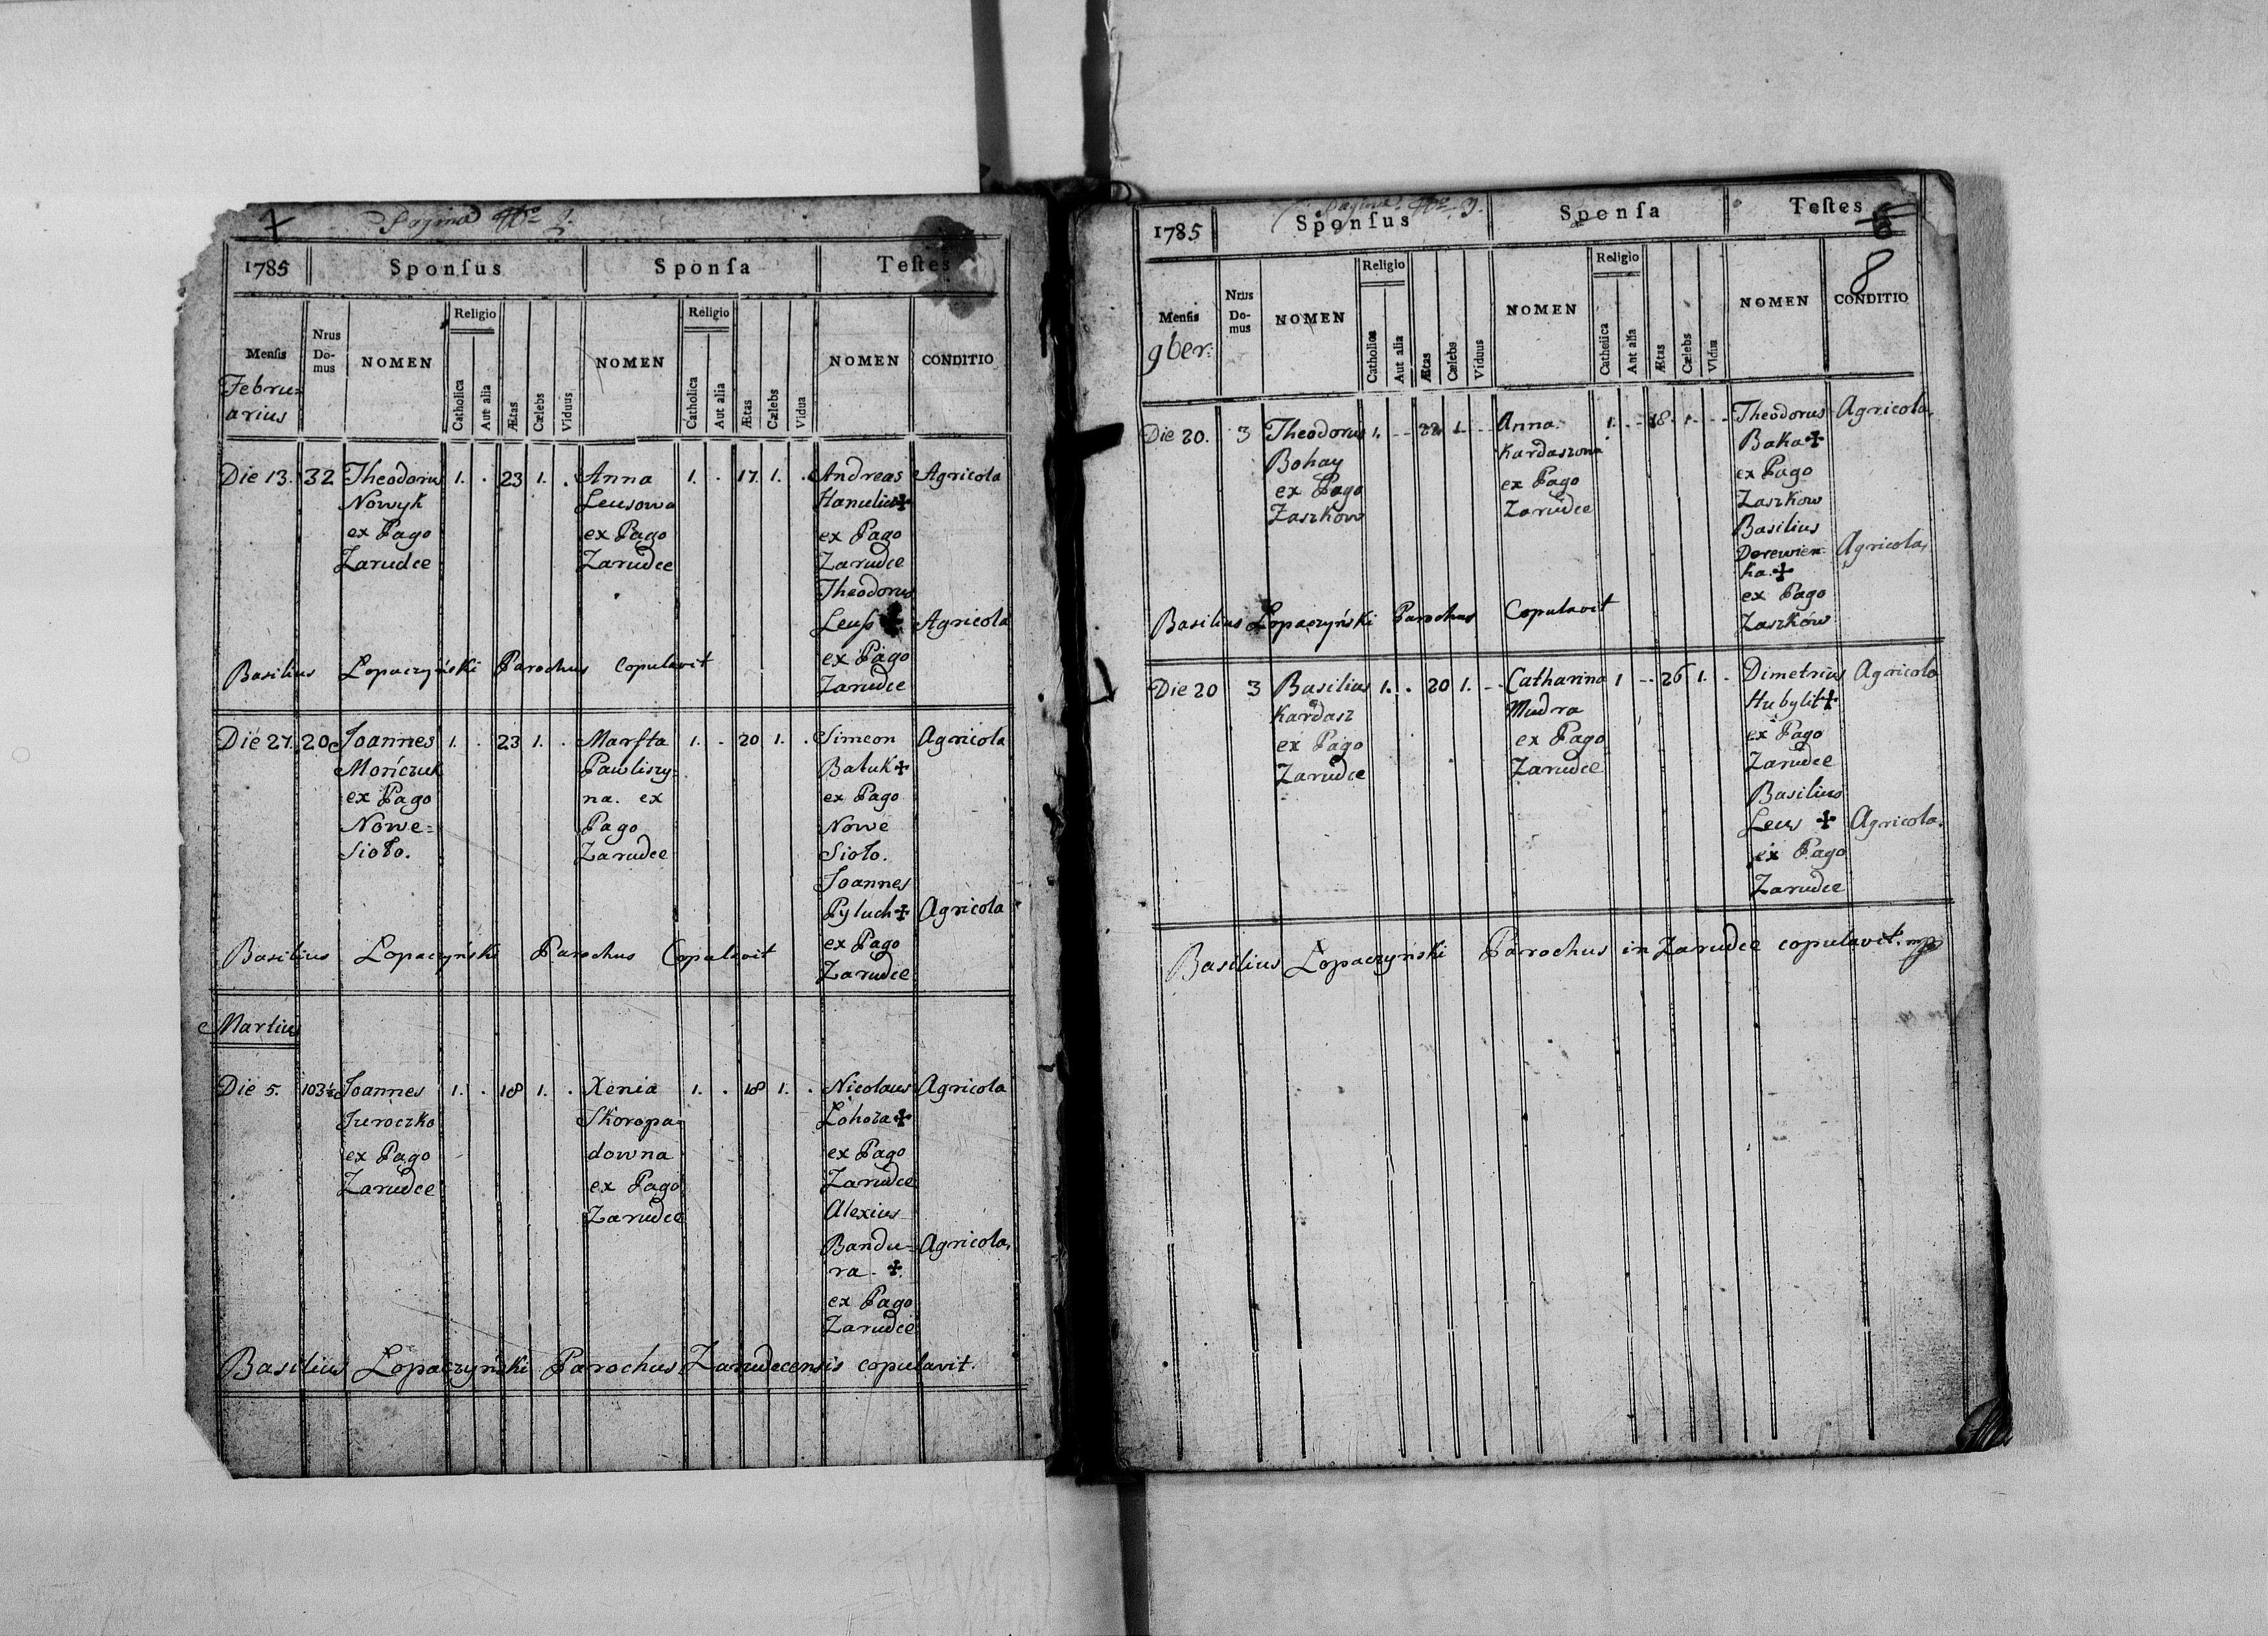 Pagina Nro 2.
1785 Sponſus Sponſa Teſtes
Menſis Nrus Domus NOMEN Religio Catholica Aut alia Ætas Cælebs Viduus NOMEN Religio Catholica Aut alia Ætas Cælebs Vidua NOMEN CONDITIO
Febru=
arius
Die 13. 32 Theodorus 1. . 23 1. . Anna 1. . 17. 1. . Andreas Agricola
Nowyk Leusowa
ex Pago ex Pago ex Pago
Zarudce Zarudce Zarudce
Theodorus
Leuſs Agricola
ex Pago
Basilius Łopaczyński Parochus Copulavit
Zarudce
Die 27. 20 Joannes 1. . 23 1. . Marſta 1. . 20 1. . Simeon Agricola
Morićzuk Pawliszy= Batuk
ex Pago na. ex ex Pago
Nowe= Pago Nowe
Sioło. Zarudce Sioło.
Joannes
Pyluch Agricola
ex Pago
Basilius Łopaczyński Parochus Copulavit
Zarudce
Martius
Die 5. 103 Joannes 1. . 18 1. . Xenia 1. . 18 1. . Nicolaus Agricola
Juroczko Skoropa= Łohoza
ex Pago downa ex Pago
Zarudce ex Pago Zarudce
Zarudce Alexius
Bandu= Agricola,
ra.
ex Pago
Zarudce
Basilius Łopaczyński Parochus Zarudecensis copulavit.
Pagina Nro 3.
1785 Sponſus Sponſa Teſtes
8
Menſis Nrus Domus NOMEN Religio Catholica Aut alia Ætas Cælebs Viduus NOMEN Religio Catholica Aut alia Ætas Cælebs Vidua NOMEN CONDITIO
9ber:
Die 20. 3 Theodorus 1. - - 22 1. - Anna 1. - - 18. 1. - - Theodorus Agricola,
Bohay Kardaszowna Baka
ex Pago ex Pago ex Pago
Zaszkow Zarudce Zaszkow
Basilius
Derewien= Agricola,
ka.
ex Pago
Basilius Łopaczyński Parochus Copulavit
Zaszków
Die 20 3 Basilius 1. . 20 1. - - Catharina 1 - - 26 1. - Dimetrius Agricola
Kardasz Mudra Hubylit
ex Pago ex Pago ex Pago
Zarudce Zarudce Zarudce
Basilius
Leus Agricola.
ex Pago
Zarudce
Basilius Łopaczyński Parochus in Zarudce copulavit. mp